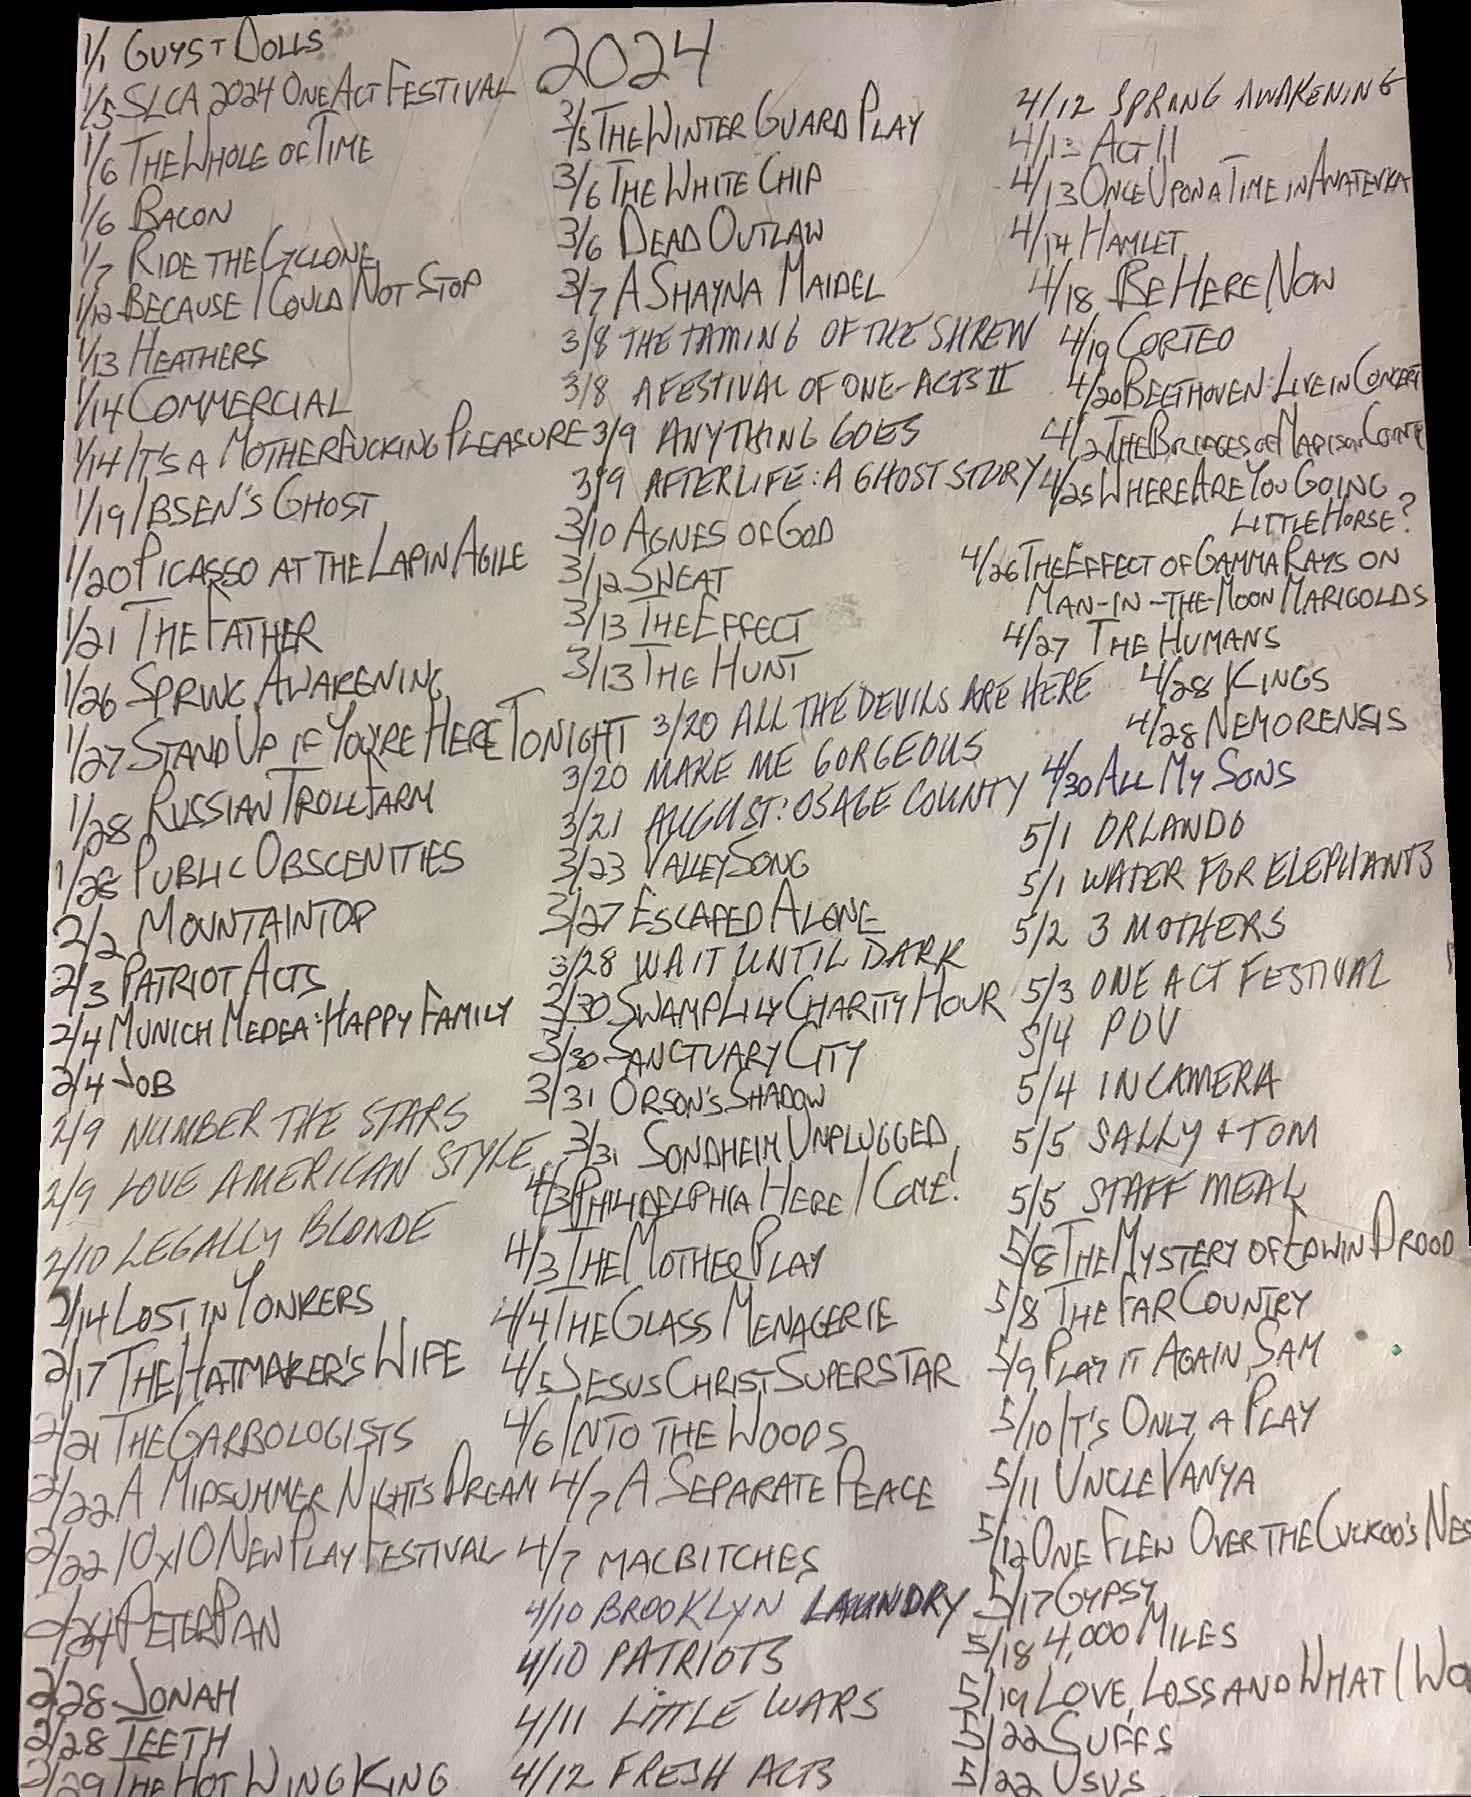 2024
1/1 GUYS + DOLLS
1/5 SLCA 2024 ONE ACT FESTIVAL
1/6 THE WHOLE OF TIME
1/6 BACON
1/7 RIDE THE CYCLONE
1/12 BECAUSE I COULD NOT STOP
1/13 HEATHERS
1/14 COMMERCIAL
1/14 IT'S A MOTHERFUCKING PLEASURE
1/19 IBSEN'S GHOST
1/20 PICASSO AT THE LAPIN AGILE
1/21 THE FATHER
1/26 SPRING AWAKENING
1/27 STAND UP IF YOU'RE HERE TONIGHT
1/28 RUSSIAN TROLL FARM
1/28 PUBLIC OBSCENITIES
2/2 MOUNTAINTOP
2/3 PATRIOT ACTS
2/4 MUNICH MEDEA: HAPPY FAMILY
2/4 JOB
2/9 NUMBER THE STARS
2/9 LOVE AMERICAN STYLE
2/10 LEGALLY BLONDE
2/14 LOST IN YONKERS
2/17 THE HATMAKER'S WIFE
2/21 THE GARBOLOGISTS
2/22 A MIDSUMMER NIGHT'S DREAM
2/22 10x10 NEW PLAY FESTIVAL
2/24 PETER PAN
2/28 JONAH
2/28 TEETH
2/29 THE HOT WING KING
3/5 THE WINTER GUARD PLAY
3/6 THE WHITE CHIP
3/6 DEAD OUTLAW
3/7 A SHAYNA MAIDEL
3/8 THE TAMING OF THE SHREW
3/8 A FESTIVAL OF ONE-ACTS II
3/9 ANYTHING GOES
3/9 AFTERLIFE: A GHOST STORY
3/10 AGNES OF GOD
3/12 SWEAT
3/13 THE EFFECT
3/13 THE HUNT
3/20 ALL THE DEVILS ARE HERE
3/20 MAKE ME GORGEOUS
3/21 AUGUST: OSAGE COUNTY
3/23 VALLEY SONG
3/27 ESCAPED ALONE
3/28 WAIT UNTIL DARK
3/30 SWAMP LILY CHARITY HOUR
3/30 SANCTUARY CITY
3/31 ORSON'S SHADOW
3/31 SONDHEIM UNPLUGGED
4/3 PHILADELPHIA HERE I COME!
4/3 THE MOTHER PLAY
4/4 THE GLASS MENAGERIE
4/5 JESUS CHRIST SUPERSTAR
4/6 INTO THE WOODS
4/7 A SEPARATE PEACE
4/7 MACBITCHES
4/10 BROOKLYN LAUNDRY
4/10 PATRIOTS
4/11 LITTLE WARS
4/12 FRESH ACTS
4/12 SPRANG AWAKENING
4/13 ACT II
4/13 ONCE UPON A TIME IN ANATEVKA
4/14 HAMLET
4/18 BE HERE NOW
4/19 CORTEO
4/20 BEETHOVEN: LIVE IN CONCERT
4/2 THE BRIDGES OF MADISON COUNTY
4/25 WHERE ARE YOU GOING
LITTLE HORSE?
4/26 THE EFFECT OF GAMMA RAYS ON
MAN-IN-THE-MOON MARIGOLDS
4/27 THE HUMANS
4/28 KINGS
4/28 NEMORENSIS
4/30 ALL MY SONS
5/1 ORLANDO
5/1 WATER FOR ELEPHANTS
5/2 3 MOTHERS
5/3 ONE ACT FESTIVAL
5/4 POV
5/4 IN CAMERA
5/5 SALLY + TOM
5/5 STAFF MEAL
5/8 THE MYSTERY OF EDWIN DROOD
5/8 THE FAR COUNTRY
5/9 PLAY IT AGAIN, SAM
5/10 IT'S ONLY A PLAY
5/11 UNCLE VANYA
5/12 ONE FLEW OVER THE CUCKOO'S NES
5/17 GYPSY
5/18 4,000 MILES
5/19 LOVE, LOSS AND WHAT I WO
5/22 SUFFS
5/22 USUS